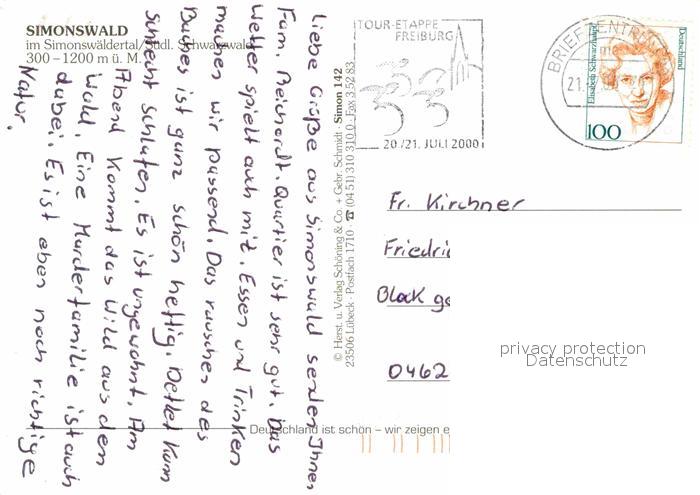 SIMONSWALD
im Simonswäldertal/Südl. Schwarzwald
300 – 1200 m ü. M.
Liebe Grüße aus Simonswald senden Ihnen
Fam. Reichardt. Quartier ist sehr gut. Das
Wetter spielt auch mit. Essen und Trinken
machen wir passend. Das rauschen des
Baches ist ganz schön heftig. Detlef kann
schlecht schlafen. Es ist ungewohnt. Am
Abend kommt das Wild aus den
Wald. Eine Marderfamilie ist auch
dabei. Es ist eben noch richtige
Natur.
© Herst. u. Verlag Schöning & Co + Gebr. Schmidt · Simon 142
23506 Lübeck · Postfach 1710 · ☎ (04 51) 310 310 · Fax 3 52 83
TOUR-ETAPPE
FREIBURG
20./21. JULI 2000
BRIEFZENTRUM
21.
Deutschland
Elisabeth Schwarzhaupt
100
Fr. Kirchner
Friedric
Block ge
0462
privacy protection
Datenschutz
Deutschland ist schön – wir zeigen e